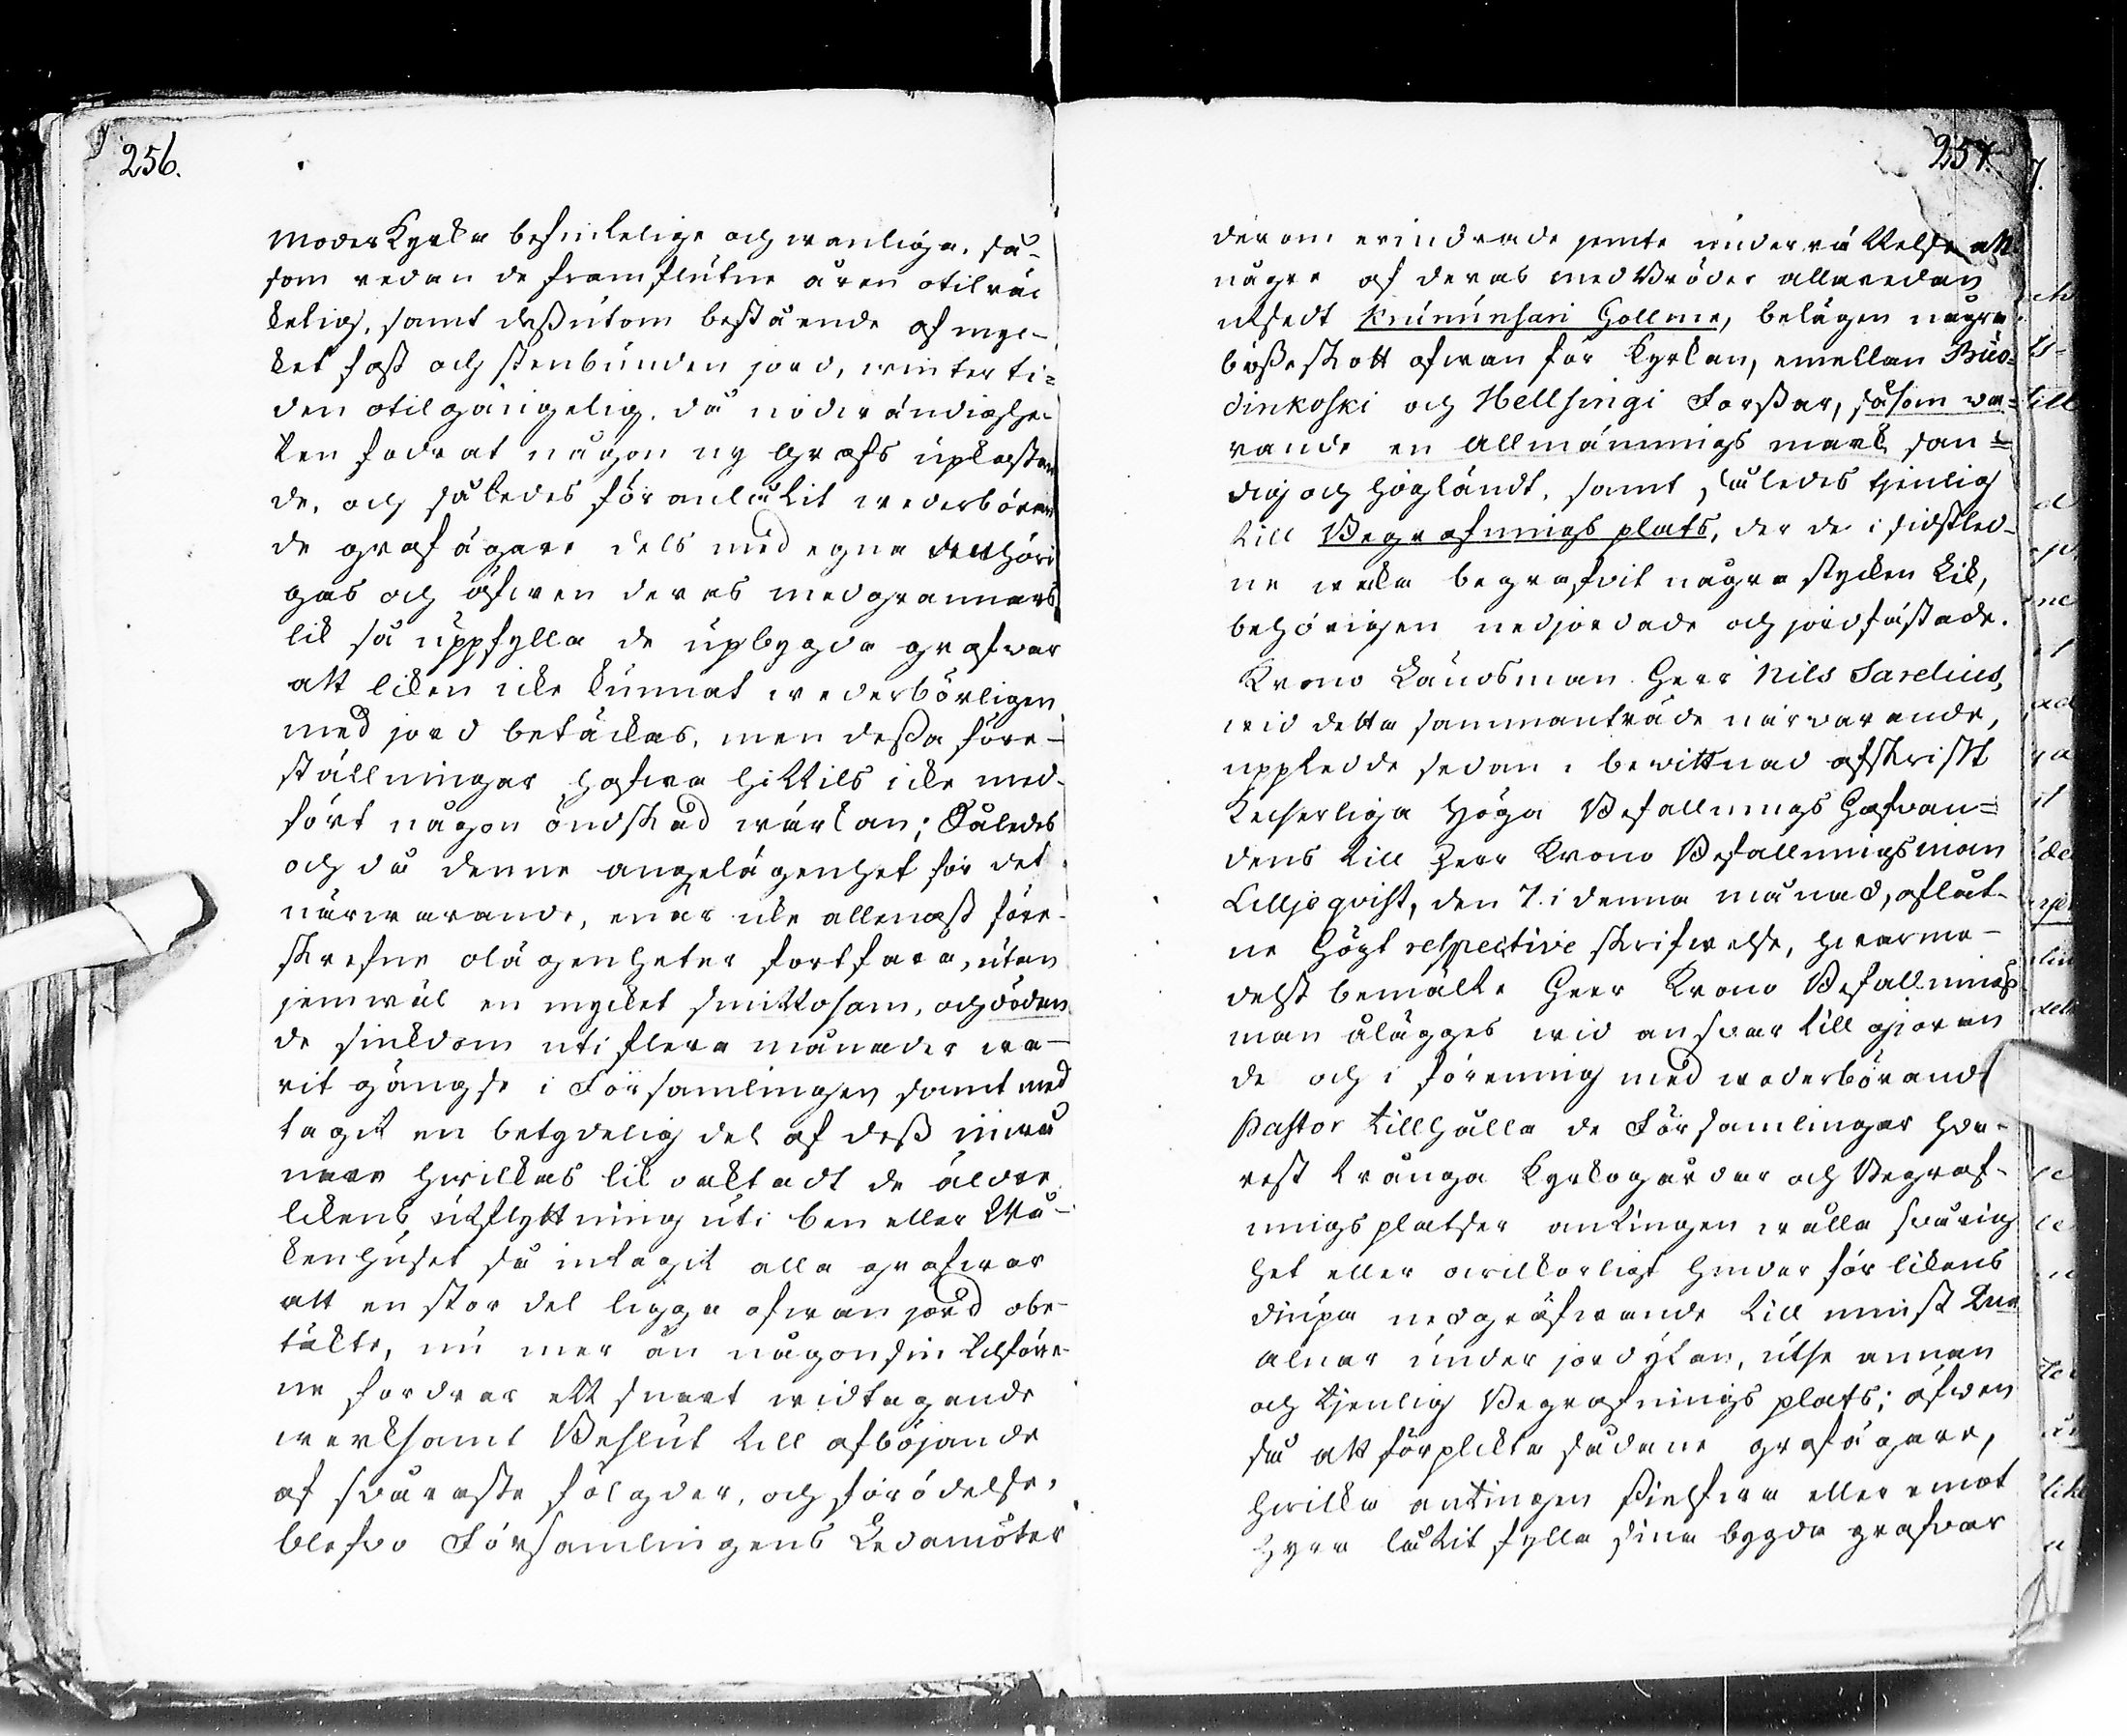 256.
moderkyrka befintelige och wanliga, så-
som redan de framflutne åren otilräc
kelig, samt dessutom bestående af myc-
ket fast och stenbunden jord, winter ti=
den otilgängelig, då nödwändighe-
ten fodrat någon ny grafs upkastan
de, och således föranlåtit wederböran
de grafägare dels med egna tillhöri
gas och äfwen deras medgrannars
lik så uppfylla de upbygda grafwar
att liken icke kunnat wederbörligen
med jord betäckas, men dessa före-
ställningar hafwa hittils icke med-
fört någon önskad wärkan; Således
och då denne angelägenhet för det
närwarande, enär icke allenast före-
skrefne olägenheter fortfara, utan
jemwäl en mycket smittosam, och dödan
de siukdom uti flera månader wa-
rit gängse i Församlingen samt med
tagit en betydelig del af dess inwå
nare hwilkas lik oaktadt de äldre
likens utflyttning uti ben eller Wå-
kenhuset så intagit alla grafwar
att en stor del ligga ofwan jord obe-
täkte, nu mer än någonsin tilföre-
ne fordrar ett snart widtagande
werksamt Beslut till afböjande
af swåraste fölgder, och förödelse,
blefwo Församlingens Ledamöter
257.
derom erindrade jemte underrättelse att
någre af deras medbröder allaredan
utsedt Kruununsari Hollme, belägen några
bösseskott ofwan för Kyrkan, emellan Kuo=
dinkoski och Hellsingi Forssar, såsom wa=
rande en Allmännings mark san=
dig och högländt, samt således tjenlig
till Begrafnings plats, der de i sidstled-
ne wecka begrafvit några stycken Lik,
behörigen nedjordade och jordfästade.
Krono Länsman Herr Nils Sarelius,
wid detta sammanträde närvarande,
uppledde sedan i bewittnad afskrift
Keiserliga Höga Befallnings Hafvan=
dens till Herr Krono Befallningsman
Liljeqvist, den 7. i denna månad, aflåt-
ne Högt respective skrifwelse, hwarme-
delst bemälte Herr Krono Befallnings
man ålägges wid answar till giöran
de och i förening med wederbörande
Pastor tillhålla de Församlingar hva-
rest trånga Kyrkogårdar och Begraf-
nings platser antingen wålla swårig
het eller owilkorligt hinder för likens
diupa nedgräfwande till minst twe
alnar under jordytan, utse annan
och tjenlig Begrafnings plats; äfwen
så att förplikta sådane grafägare,
hwilka antingen sielfwa eller emot
hyra låtit fylla sina bygda grafvar